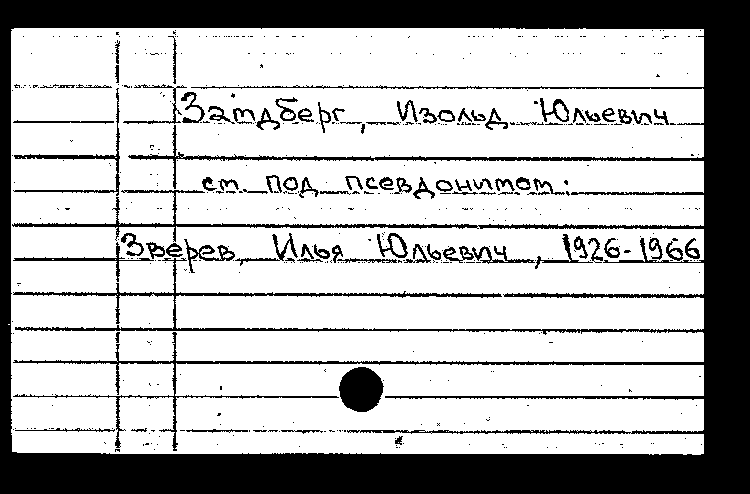 Замдберг, Изольд Юльевич
см. под псевдонимом:
Зверев, Илья Юльевич, 1926-1966